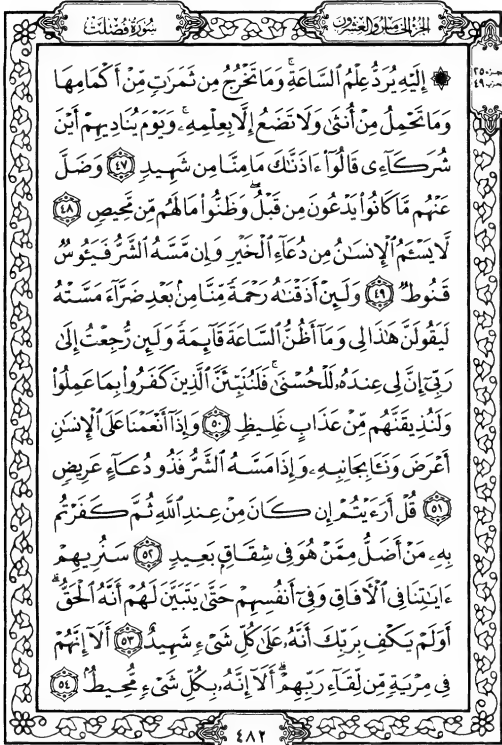 سُورَةُ فُصِّلَتْ
الجُزْءُ الخَامِسُ وَالعِشْرُونَ
۞ إِلَيْهِ يُرَدُّ عِلْمُ ٱلسَّاعَةِۚ وَمَا تَخْرُجُ مِن ثَمَرَٰتٖ مِّنْ أَكْمَامِهَا
وَمَا تَحْمِلُ مِنْ أُنثَىٰ وَلَا تَضَعُ إِلَّا بِعِلْمِهِۦۚ وَيَوْمَ يُنَادِيهِمْ أَيْنَ
شُرَكَآءِي قَالُوٓا۟ ءَاذَنَّٰكَ مَا مِنَّا مِن شَهِيدٖ ٤٧ وَضَلَّ
عَنْهُم مَّا كَانُوا۟ يَدْعُونَ مِن قَبْلُۖ وَظَنُّوا۟ مَا لَهُم مِّن مَّحِيصٖ ٤٨
لَّا يَسْـَٔمُ ٱلْإِنسَٰنُ مِن دُعَآءِ ٱلْخَيْرِ وَإِن مَّسَّهُ ٱلشَّرُّ فَيَـُٔوسٞ
قَنُوطٞ ٤٩ وَلَئِنْ أَذَقْنَٰهُ رَحْمَةٗ مِّنَّا مِنۢ بَعْدِ ضَرَّآءَ مَسَّتْهُ
لَيَقُولَنَّ هَٰذَا لِي وَمَآ أَظُنُّ ٱلسَّاعَةَ قَآئِمَةٗ وَلَئِن رُّجِعْتُ إِلَىٰ
رَبِّيٓ إِنَّ لِي عِندَهُۥ لَلْحُسْنَىٰۚ فَلَنُنَبِّئَنَّ ٱلَّذِينَ كَفَرُوا۟ بِمَا عَمِلُوا۟
وَلَنُذِيقَنَّهُم مِّنْ عَذَابٍ غَلِيظٖ ٥٠ وَإِذَآ أَنْعَمْنَا عَلَى ٱلْإِنسَٰنِ
أَعْرَضَ وَنَـَٔا بِجَانِبِهِۦ وَإِذَا مَسَّهُ ٱلشَّرُّ فَذُو دُعَآءٍ عَرِيضٖ
٥١ قُلْ أَرَءَيْتُمْ إِن كَانَ مِنْ عِندِ ٱللَّهِ ثُمَّ كَفَرْتُم
بِهِۦ مَنْ أَضَلُّ مِمَّنْ هُوَ فِي شِقَاقِۭ بَعِيدٖ ٥٢ سَنُرِيهِمْ
ءَايَٰتِنَا فِي ٱلْأٓفَاقِ وَفِيٓ أَنفُسِهِمْ حَتَّىٰ يَتَبَيَّنَ لَهُمْ أَنَّهُ ٱلْحَقُّۗ
أَوَلَمْ يَكْفِ بِرَبِّكَ أَنَّهُۥ عَلَىٰ كُلِّ شَيْءٖ شَهِيدٌ ٥٣ أَلَآ إِنَّهُمْ
فِي مِرْيَةٖ مِّن لِّقَآءِ رَبِّهِمْۗ أَلَآ إِنَّهُۥ بِكُلِّ شَيْءٖ مُّحِيطُۢ ٥٤
٤٨٢